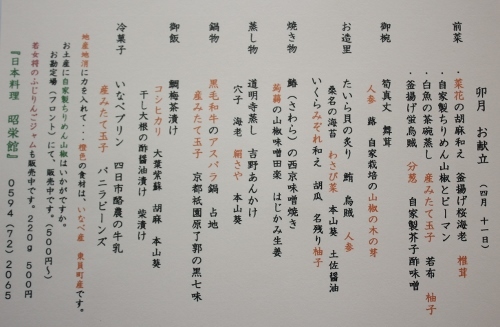 卯月　お献立　（四月　十一日）
前菜　・菜花の胡麻和え　釜揚げ桜海老　椎茸
・自家製ちりめん山椒とピーマン
・白魚の茶碗蒸し　産みたて玉子　若布　柚子
・釜揚げ蛍烏賊　分葱　自家製芥子酢味噌
御椀　筍真丈　舞茸
人参　蕗　自家栽培の山椒の木の芽
お造里　たいら貝の炙り　鮪　烏賊　人参
桑名の海苔　わさび菜　本山葵　土佐醤油
いくらみぞれ和え　胡瓜　名残り柚子
焼き物　鰆（さわら）の西京味噌焼き
蒟蒻の山椒味噌田楽　はじかみ生姜
蒸し物　道明寺蒸し　吉野あんかけ
穴子　海老　絹さや　本山葵
鍋物　黒毛和牛のアスパラ鍋　占地
産みたて玉子　京都祇園原了郭の黒七味
御飯　鯛梅茶漬け
コシヒカリ　大葉紫蘇　胡麻　本山葵
干し大根の酢醤油漬け　柴漬け
冷菓子　いなべプリン　四日市酪農の牛乳
産みたて玉子　バニラビーンズ
地産地消に力を入れて・・・橙色の食材は、いなべ産　東員町産です。
お土産に自家製ちりめん山椒はいかがですか。
お勘定場（フロント）にて、販売中です。（５００円～）
若女将のふじりんごジャムも販売中です。２２０ｇ　５００円
『日本料理　昭栄館』　０５９４（７２）２０６５